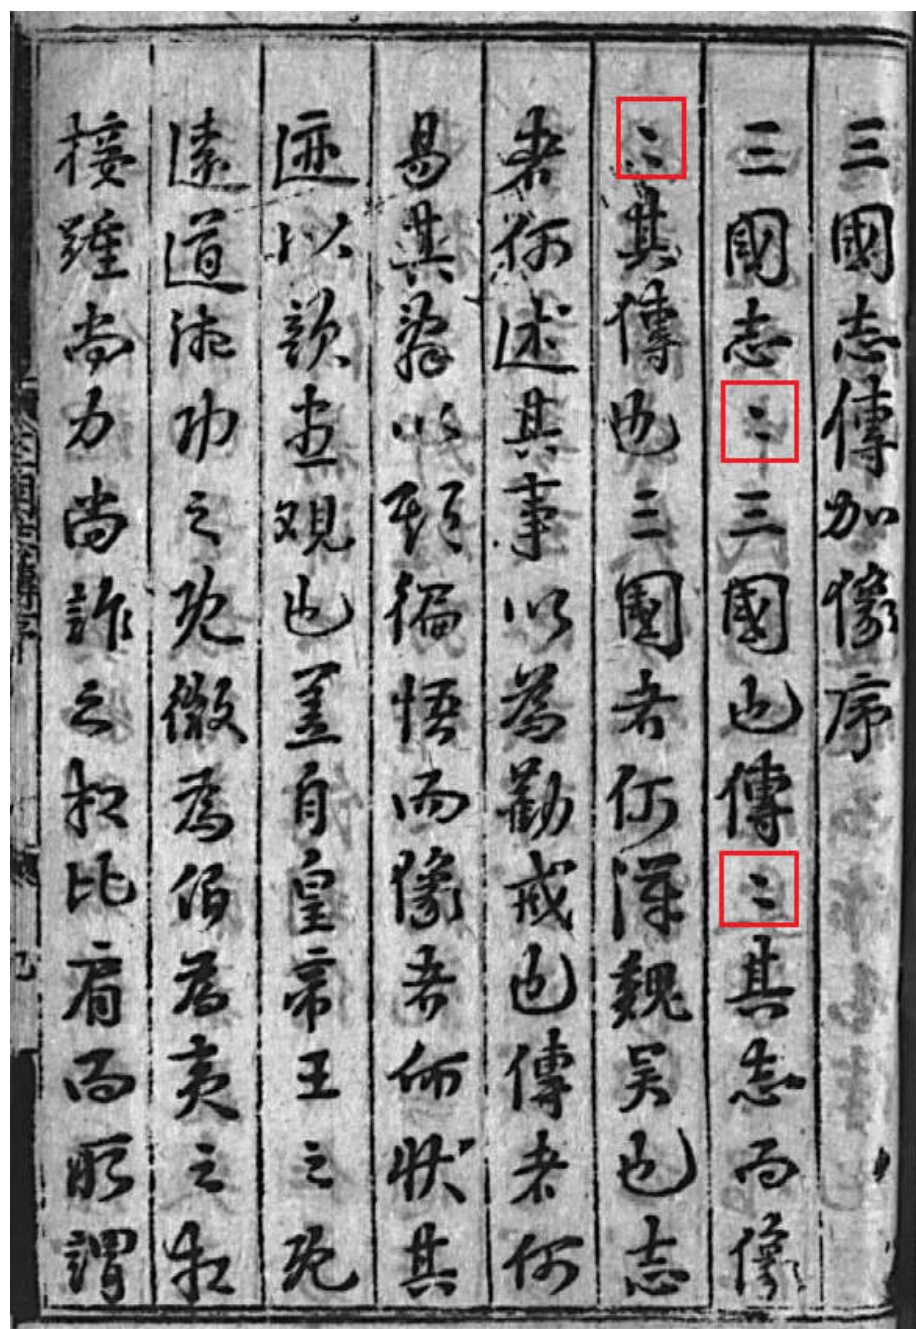 三國志傳加像序
三國志〻三國也傳〻其志而像
〻其傳也三國者何漢魏吳也志
者何述其事以為勸戒也傳者何
易其辭以期徧悟而像者何狀其
迹以欲盡觀也蓋自皇帝王之既
遠道功之既微為伯為夷之相
接踵尚力尚詐之相比肩而所謂